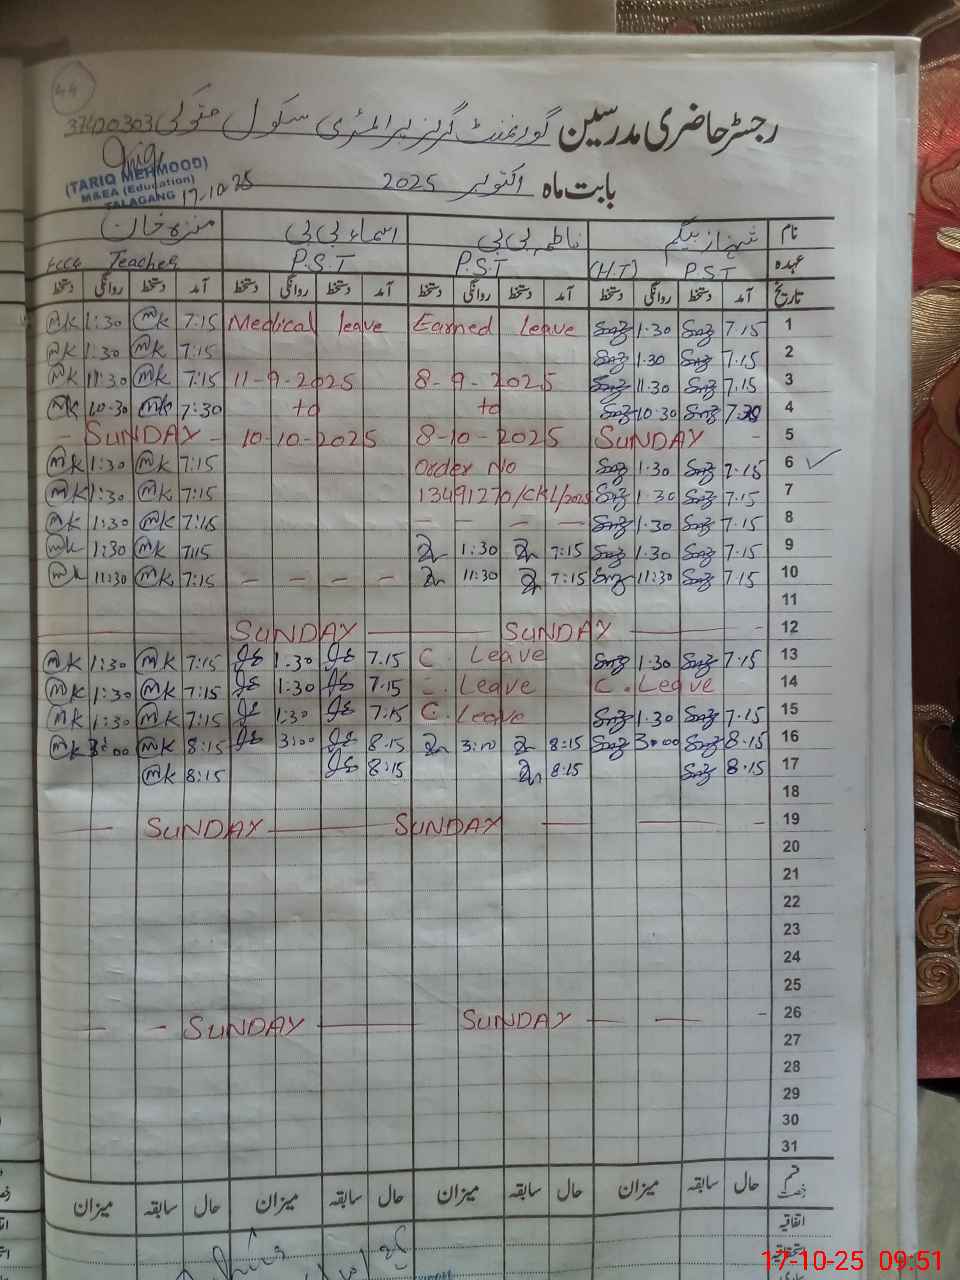 44
رجسٹر حاضری مدرسین گورنمنٹ گرلز پرائمری سکول 37400303
(TARIQ MEHMOOD)
M&EA (Education)
TALAGANG 17-10-25
بابت ماہ اکتوبر 2025
نام شہناز بیگم بی بی اسماء بی بی منزہ خان
عہدہ P.S.T (H.T) P.S.T P.S.T Teacher
تاریخ آمد دستخط روانگی دستخط آمد دستخط روانگی دستخط آمد دستخط روانگی دستخط آمد دستخط روانگی دستخط
mk 1:30 mk 7:15 Medical leave Earned Leave 1.30 7.15 1
mk 1:30 mk 7:15 1.30 7.15 2
mk 11:30 mk 7:15 11-9-2025 8-9-2025 11.30 7.15 3
mk 10.30 mk 7:30 to to 10.30 4
- SUNDAY - 10-10-2025 8-10-2025 SUNDAY - 5
mk 1:30 mk 7:15 Order No 1.30 7.15 6
mk 1:30 mk 7:15 13491270/CKL/2025 1.30 7.15 7
mk 1:30 mk 7:15 - - - - 1.30 7.15 8
mk 1:30 mk 7:15 1:30 7:15 1.30 7.15 9
mk 11:30 mk 7:15 - - - - 11:30 7:15 11.30 7.15 10
11
SUNDAY SUNDAY 12
mk 1:30 mk 7:15 1.30 7.15 C. Leave 1.30 7.15 13
mk 1:30 mk 7:15 1:30 7.15 C. Leave C. Leave 14
mk 1:30 mk 7:15 1:30 7.15 C. Leave 1.30 7.15 15
mk 3:00 mk 8:15 3:00 8.15 3:00 8:15 3:00 8.15 16
mk 8:15 8:15 8:15 8.15 17
18
SUNDAY SUNDAY 19
20
21
22
23
24
25
SUNDAY SUNDAY 26
27
28
29
30
31
قسم رخصت حال سابقہ میزان حال سابقہ میزان حال سابقہ میزان حال سابقہ میزان
اتفاقیہ
استحقاقیہ
17-10-25 09:51